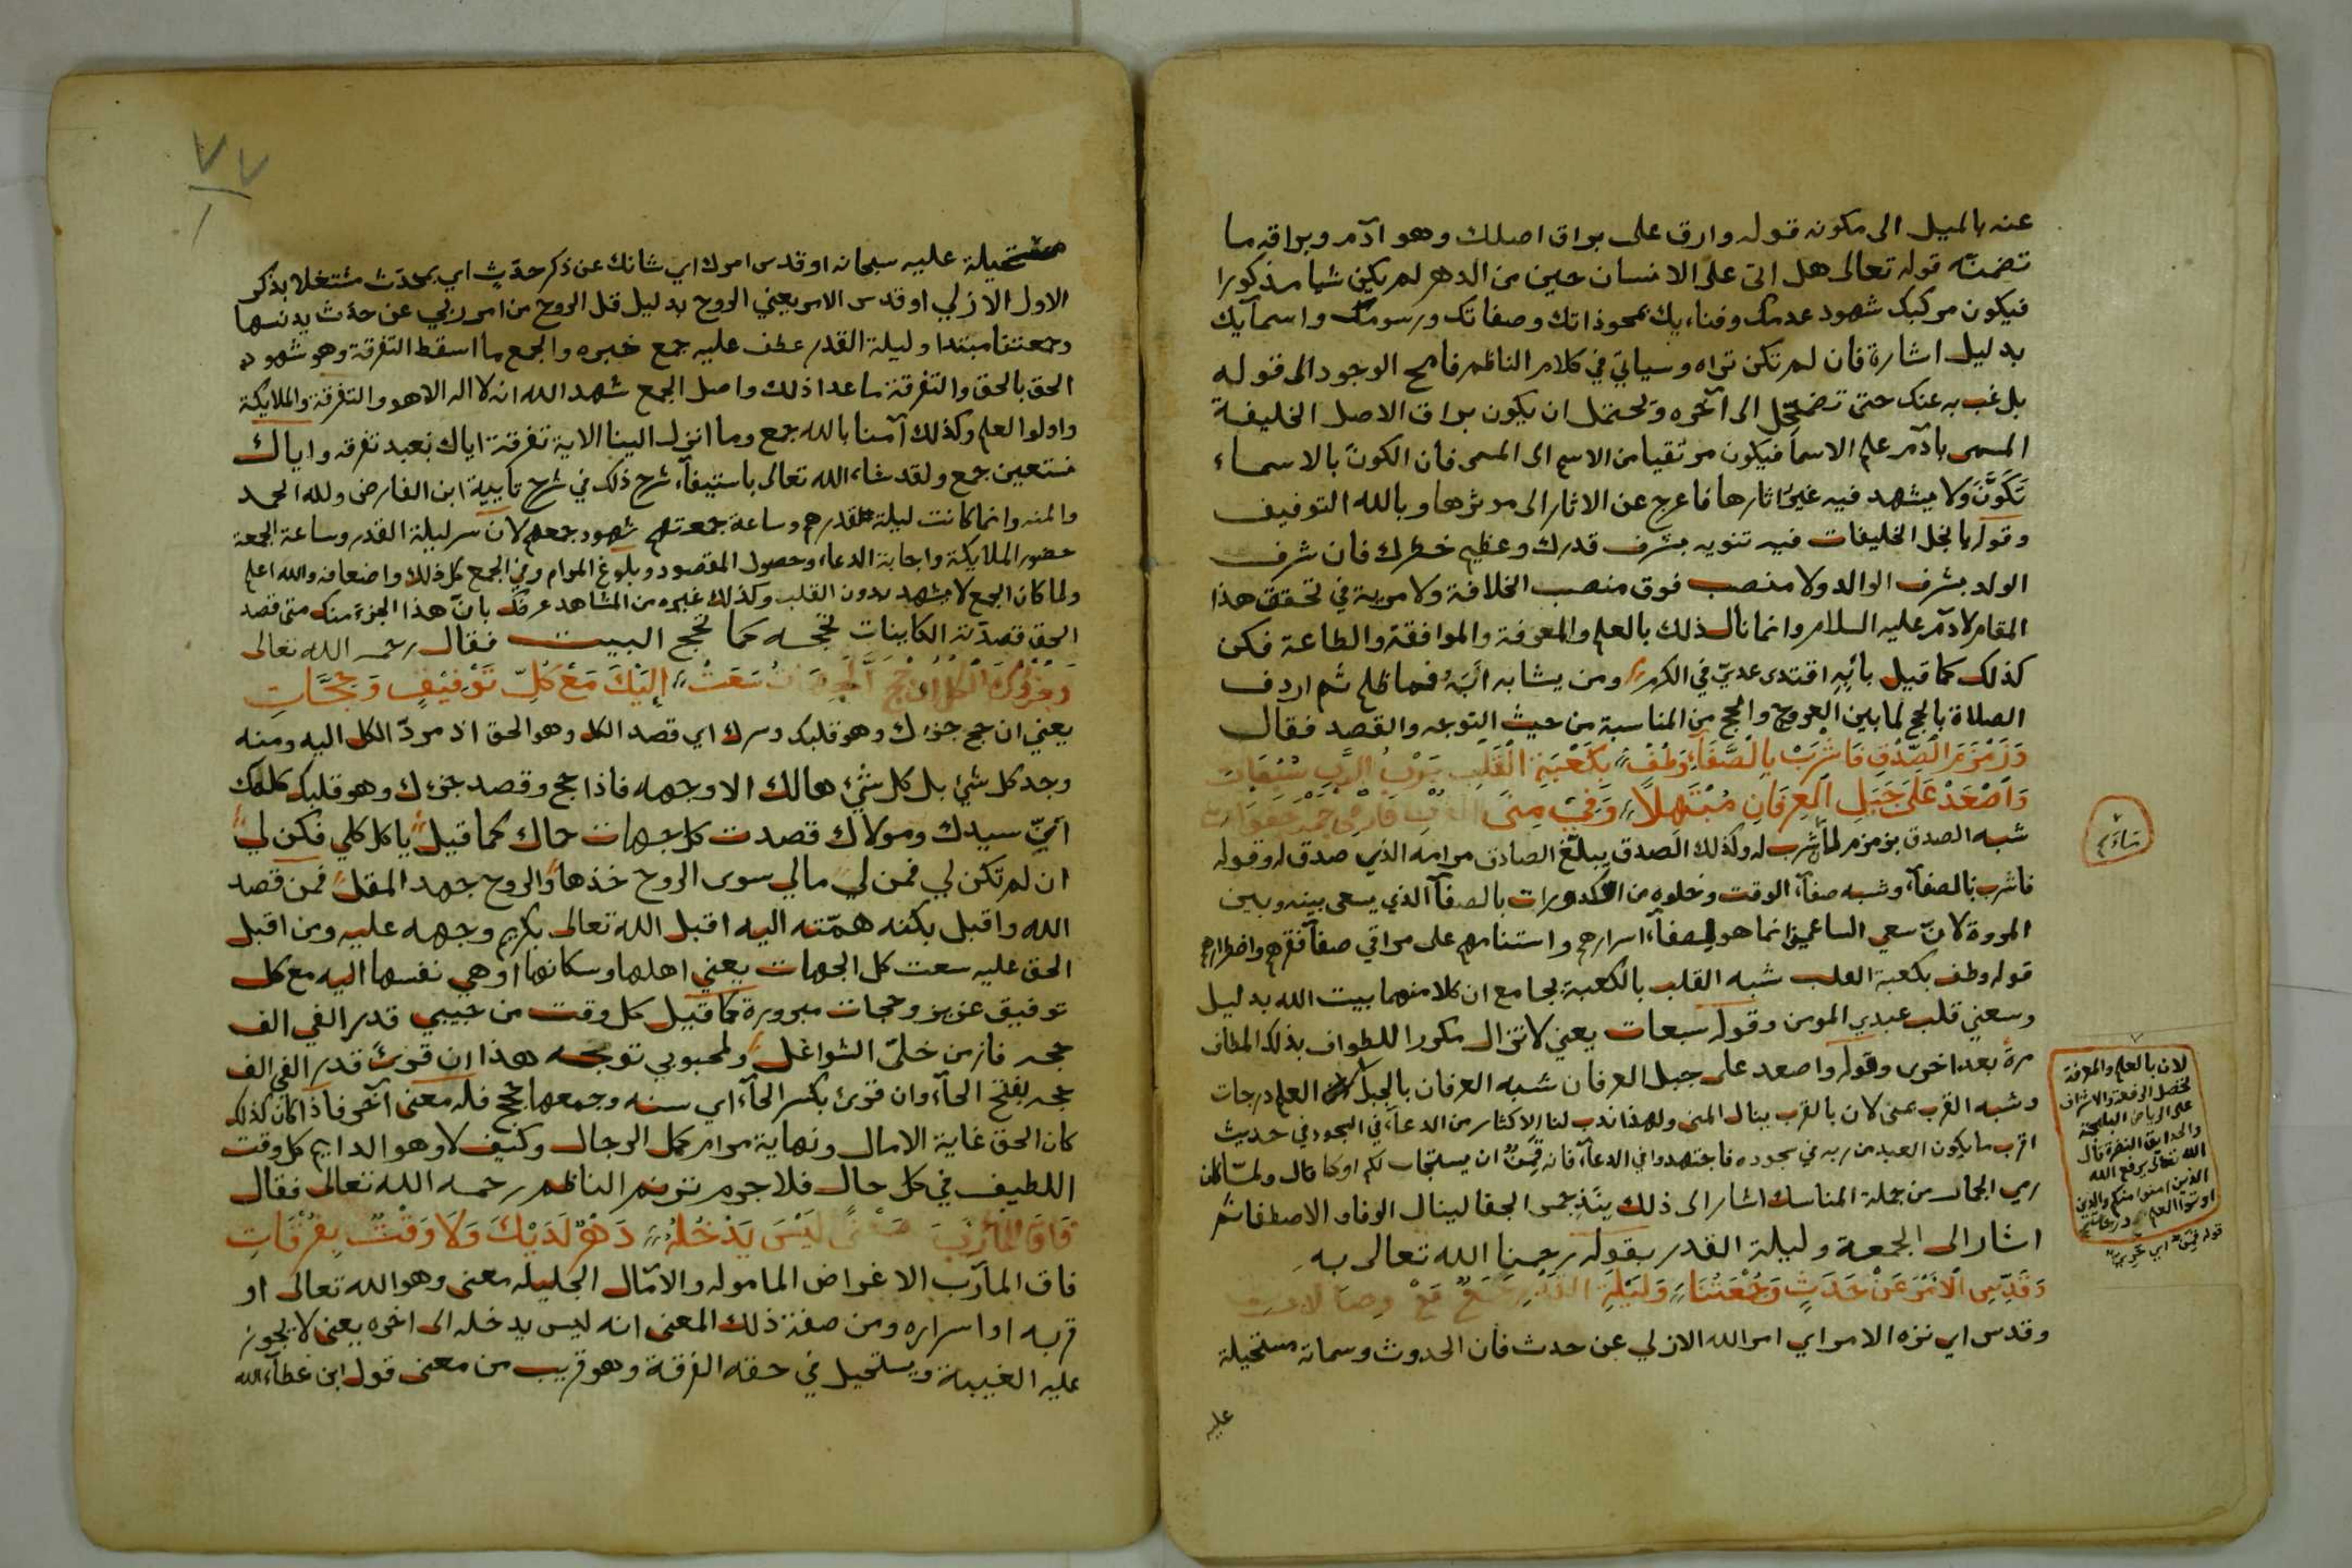 عنه بالميل الى مكونه قوله وارق على براق اصلك وهو آدم وبراقه ما
تضمنّه قوله تعالى هل اتى على الانسان حين من الدهر لم يكن شيا مذكورا
فيكون مركبك شهود عدمك وفنايك بمحو ذاتك وصفاتك ورسومك واسمآيك
بدليل اشارة فان لم تكن تراه وسياتي في كلام الناظم فامح الوجود الى قوله
بل غب به عنك حتى تضمحل الى آخره ويحتمل ان يكون براق الاصل الخليفة
المسمى بادم علم الاسما فيكون مرتقيا من الاسم الى المسمى فان الكون بالاسماء
تَكَوَّنَ ولا يشهد فيه غير اثارها فاعرج عن الاثار الى موثرها وبالله التوفيق
وقوله يا نجل الخليفات فيه تنويه بشرف قدرك وعظيم خطرك فان شرف
الولد بشرف الوالد ولا منصب فوق منصب الخلافة ولا مرية في تحقق هذا
المقام لادم عليه السلام وانما نال ذلك بالعلم والمعرفة والموافقة والطاعة فكن
كذلك كما قيل بأبِهِ اقتدى عديّ في الكرم ومن يشابه ابَهُ فما ظلم ثم اردف
الصلاة بالحج لما بين العروج والحج من المناسبة من حيث التوجه والقصد فقال
وَزَمْزَمَ الصِّدْقِ فَاشْرَبْ بِالصَّفَآءِ وَطُفْ بِكَعْبَةِ الْقَلْبِ
وَاصْعَدْ عَلَى جَبَلِ الْعِرفَانِ مُبْتَهِلاً وَفِي مِنَى
شبه الصدق بزمزم لما شرب له وكذلك الصدق يبلّغ الصادق مرامه الذي صدق له وقوله
فاشرب بالصفآء وشبه صفآء الوقت وخلوه من الكدورات بالصفآ الذي يسعى بينه وبين
المروة لانّ سعي الساعين انما هو لصفآء اسرارهم واستنامهم على مراقي صفآ فقرهم واضطرارهم
قوله وطف بكعبة القلب شبه القلب بالكعبة بجامع ان كلا منهما بيت الله بدليل
وسعني قلب عبدي المومن وقوله سبعات يعني لا تزال مكررا للطواف بذلك المطاف
مرة بعد اخرى وقوله واصعد على جبل العرفان شبه العرفان بالجبل العلم درجات
وشبه القرب بمنى لان بالقرب ينال المنى ولهذا ندب لنا الاكثار من الدعآء في السجود في حديث
اقرب ما يكون العبد من ربه في سجوده فاجتهدوا في الدعآء فانه قَمِنٌ ان يستجاب لكم او كما قال ولمّا كان
رمي الجمار من جملة المناسك اشار الى ذلك الجفا لينال الوفا والاصطفا ثم
اشار الى الجمعة وليلة القدر بقوله رحمنا الله تعالى به
وَقَدِّسِ الْأَمْرَ عَنْ حَدَثٍ وَجُمْعَتُنَا وَلَيْلَةِ
وقدس اي نزه الامر اي امر الله الازلي عن حدث فان الحدوث وسماته مستحيلة
عليه
لان بالعلم والمعرفة
تحصل الرفعة والاشراف
على الرياض البهيجة
والحدايق النضرة قال
الله تعالى يرفع الله
الذين امنوا منكم والذين
اوتوا العلم درجات
قوله قَمِن اي حري
٧٧
مستحيلة عليه سبحانه او قدس امرك اي شانك عن ذكر حدث اي بحدث مشتغلا بذكر
الاول الازلي او قدس الامر يعني الروح بدليل قل الروح من امر ربي عن حدث يدنسها
وجمعتنا مبتدا وليلة القدر عطف عليه جمع خبره والجمع ما اسقط التفرقة وهو شهود
الحق بالحق والتفرقة ما عدا ذلك واصل الجمع شهد الله انه لا اله الا هو والتفرقة والملايكة
واولوا العلم وكذلك آمنا بالله جمع وما انزل الينا الاية تفرقة اياك نعبد تفرقه واياك
نستعين جمع ولقد شاء الله تعالى باستيفآء شرح ذلك في شرح تايية ابن الفارض ولله الحمد
والمنه وانما كانت ليلة قدرهم وساعة جمعتهم شهود جمعهم لان سر ليلة القدر وساعة الجمعة
حضور الملايكة واجابة الدعاء وحصول المقصود وبلوغ المرام وفي الجمع كل ذلك واضعافه والله اعلم
ولما كان الجمع لا يشهد بدون القلب وكذلك غيره من المشاهد عرفك بانّ هذا الجزء منك متى قصد
الحق قصدته الكاينات تحجه كما تحج البيت فقال رحمه الله تعالى
سَعَتْ إِلَيْكَ مَعْ كُلِّ تَوْفِيْقٍ وَحَجَّاتِ
يعني ان حج جزءك وهو قلبك وسرك اي قصد الكل وهو الحق اذ مردّ الكل اليه ومنه
وجد كل شيء بل كل شيء هالك الا وجهه فاذا حج وقصد جزءك وهو قلبك كلك
اي سيدك ومولاك قصدت كل جهات حماك كما قيل يا كل كلي فكن لي
ان لم تكن لي فمن لي مالي سوى الروح خذها والروح جهد المقل فمن قصد
الله واقبل بكنه همّته اليه اقبل الله تعالى بكريم وجهه عليه ومن اقبل
الحق عليه سعت كل الجهات يعني اهلها وسكانها او هي نفسها اليه مع كل
توفيق عزيز وحجات مبرورة كما قيل كل وقت من حبيبي قدر الفي الف
حجه فاز من خلّى الشواغل ولمحبوبي توجه هذا ان قرئ قدر الفي الف
حجه بفتح الحآء وان قرئ بكسر الحآء اي سنه وجمعها حجج فله معنى آخر فاذا كان كذلك
كان الحق غاية الامال ونهاية مرام كمل الرجال وكيف لا وهو الدايم كل وقت
اللطيف في كل حال فلا جرم ترنم الناظم رحمه الله تعالى فقال
فَاقَ الْمَآرِبَ مَعْنًى لَيْسَ يَدْخُلُهُ دَهْرٌ لَدَيْكَ وَلَا وَقْتٌ بِفُرْقَاتِ
فاق المآرب الاغراض الماموله والآمال الجليله معنى وهو الله تعالى او
قربه او اسراره ومن صفة ذلك المعنى انه ليس يدخله الى اخره يعني لا يجوز
عليه الغيبة ويستحيل في حقه الفرقة وهو قريب من معنى قول ابن عطآء الله